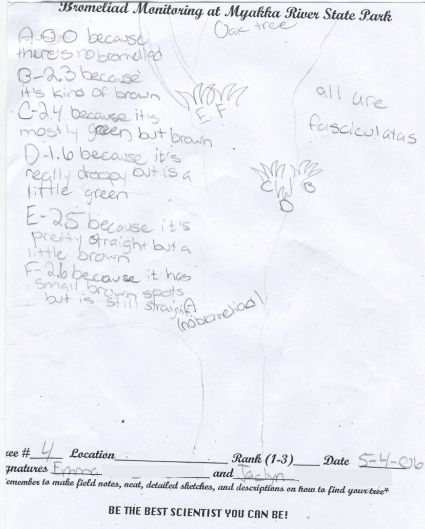 Bromeliad Monitoring at Myakka River State Park
Oak tree
A-0.0 because
there's no bromeliad
B-2.3 because
it's kind of brown
C-2.4 because it's
mostly green but brown
D-1.6 because it's
really droopy but is a
little green
E-2.5 because it's
pretty straight but a
little brown
F-2.6 because it has
small brown spots
but is still straight
E F
all are
fasciculatas
C B
D
A
(no bromeliad)
ree # 4 Location Rank (1-3) Date 5-4-06
gnatures Emma and Jaclyn
emember to make field notes, neat, detailed sketches, and descriptions on how to find your tree*
BE THE BEST SCIENTIST YOU CAN BE!